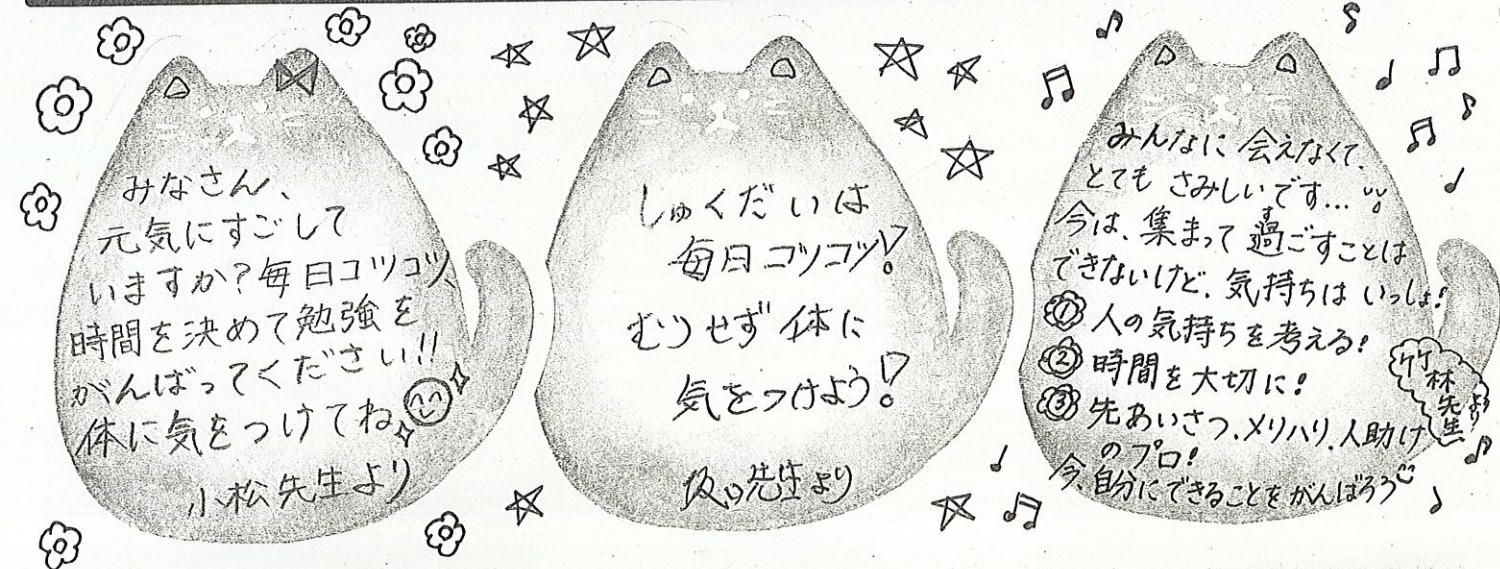 みなさん、
元気にすごして
いますか?毎日コツコツ、
時間を決めて勉強を
がんばってください!!
体に気をつけてね
小松先生より
しゅくだいは
毎日コツコツ!
むりせず体に
気をつけよう!
坂口先生より
みんなに会えなくて、
とてもさみしいです…
今は、集まって過ごすことは
す
できないけど、気持ちはいっしょ!
① 人の気持ちを考える!
② 時間を大切に!
③ 先あいさつ、メリハリ、人助け
のプロ!
今、自分にできることをがんばろう
竹林先生より